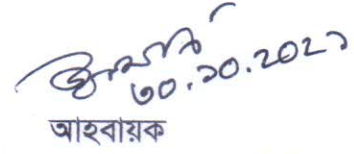 ৩০.১০.২০২১
আহবায়ক